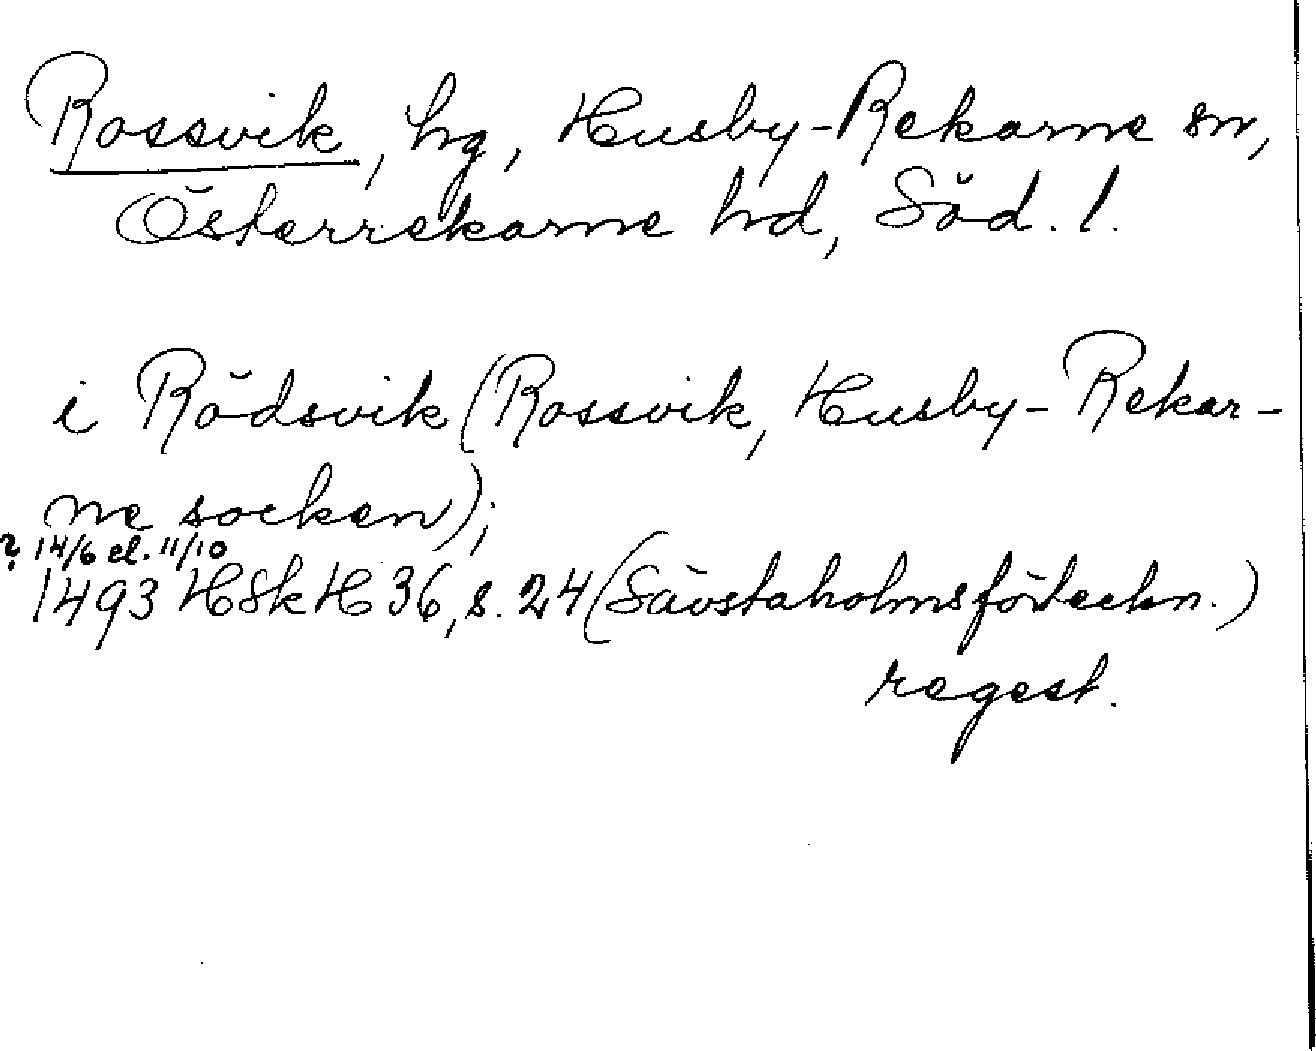 Rossvik, hg, Husby-Rekarne sn,
Österrekarne hd, Söd. l.
i Rödsvik (Rossvik, Husby-Rekar-
ne socken);
? 14/6 el. 11/10
1493 HSkH 36, s. 24 (Sävstaholmsförteckn.)
regest.